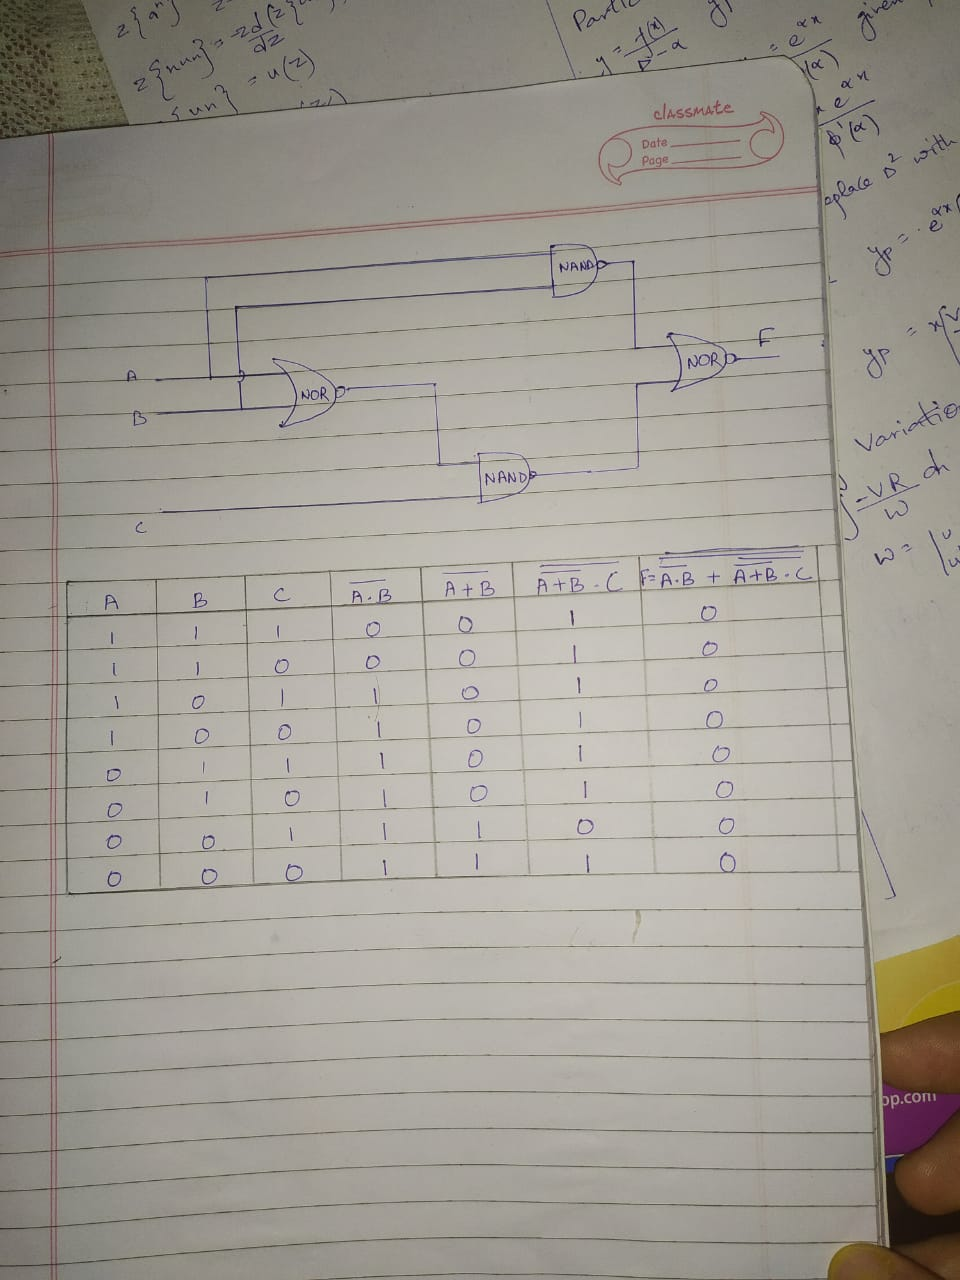 z{aⁿ}
z{nun} = -zd(z{u
dz
{un} = u(z)
y = f(x)
D-α
= e^αx
(α)
e^αx
φ'(α)
eplace D² with
yp = e^αx
yp = x
Variatio
∫ -VR dn
W
W = |u
classmate
Date
Page
NAND
A
B
NOR
NOR
F
NAND
C
A B C A̅.̅B̅ A̅+̅B̅ \overline{\overline{A+B} · C} F = \overline{\overline{A·B} + \overline{\overline{A+B} · C}}
1 1 1 0 0 1 0
1 1 0 0 0 1 0
1 0 1 1 0 1 0
1 0 0 1 0 1 0
0 1 1 1 0 1 0
0 1 0 1 0 1 0
0 0 1 1 1 0 0
0 0 0 1 1 1 0
op.com